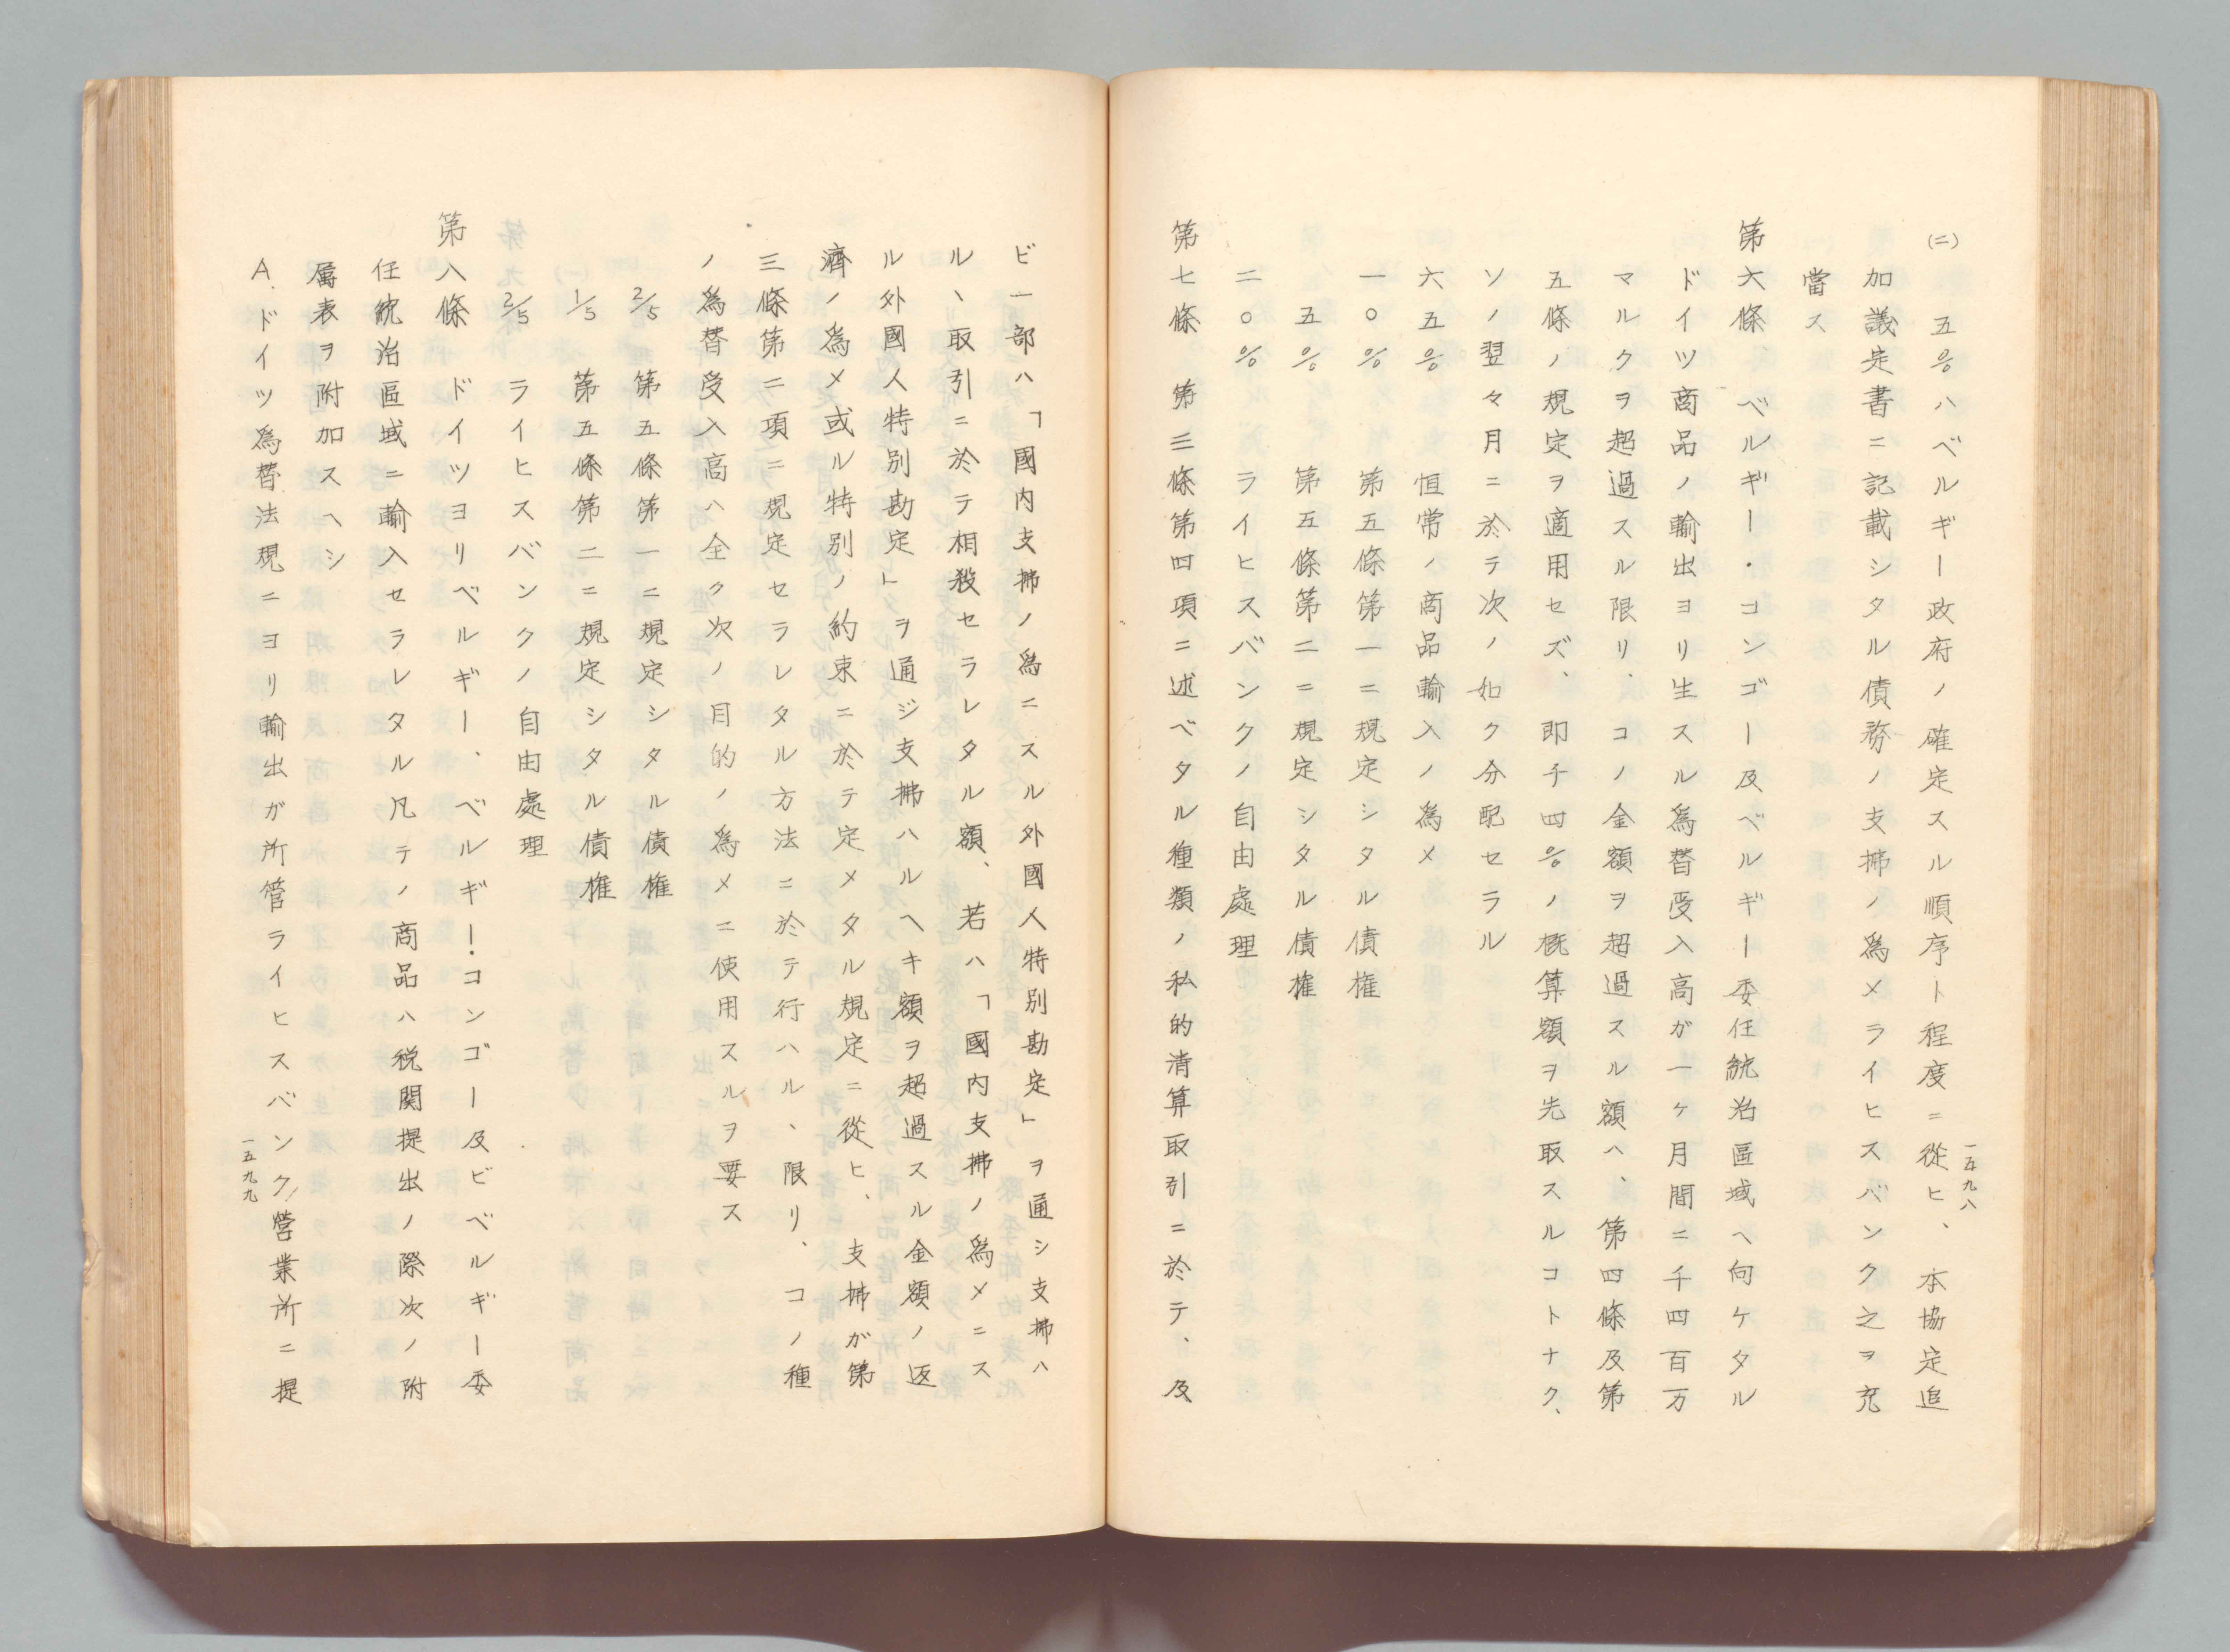 (二) 五%ハベルギー政府ノ確定スル順序ト程度ニ從ヒ、本協定追
加議定書ニ記載シタル債務ノ支拂ノ爲メライヒスバンク之ヲ充
當ス
第六條、ベルギー・コンゴー及ベルギー委任統治區域ヘ向ケタル
ドイツ商品ノ輸出ヨリ生スル爲替受入高ガ一ヶ月間ニ千四百万
マルクヲ超過スル限リ、コノ金額ヲ超過スル額ヘ、第四條及第
五條ノ規定ヲ適用セズ、即チ四%ノ概算額ヲ先取スルコトナク、
ソノ翌々月ニ於テ次ノ如ク分配セラル
六五% 恒常ノ商品輸入ノ爲メ
一〇% 第五條第一ニ規定シタル債権
五% 第五條第二ニ規定シタル債権
二〇% ライヒスバンクノ自由處理
第七條 第三條第四項ニ述ベタル種類ノ私的清算取引ニ於テ、及
一五九八
ビ一部ハ「國内支拂ノ爲ニスル外國人特別勘定」ヲ通シ支拂ハ
ルヽ取引ニ於テ相殺セラレタル額、若ハ「國内支拂ノ爲メニス
ル外國人特別勘定」ヲ通ジ支拂ハルヘキ額ヲ超過スル金額ノ返
濟ノ爲メ或ル特別ノ約束ニ於テ定メタル規定ニ從ヒ、支拂が第
三條第二項ニ規定セラレタル方法ニ於テ行ハル、限リ、コノ種
ノ爲替受入高ハ全ク次ノ目的ノ爲メニ使用スルヲ要ス
2/5 第五條第一ニ規定シタル債權
1/5 第五條第二ニ規定シタル債権
2/5 ライヒスバンクノ自由處理
第八條 ドイツヨリベルギー、ベルギー!コンゴー及ビベルギー委
任統治區域ニ輸入セラレタル凡テノ商品ハ税関提出ノ際次ノ附
属表ヲ附加スヘシ
A.ドイツ爲替法規ニヨリ輸出が所管ライヒスバンク營業所ニ提
一五九九